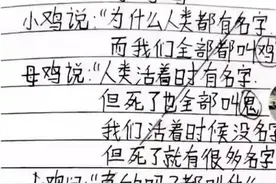 小鸡说:“为什么人类都有名字
而我们全部都叫鸡
母鸡说:“人类活着时有名字
但死了也全部叫鬼
我们活着时候没名字
但死了就有很多名字